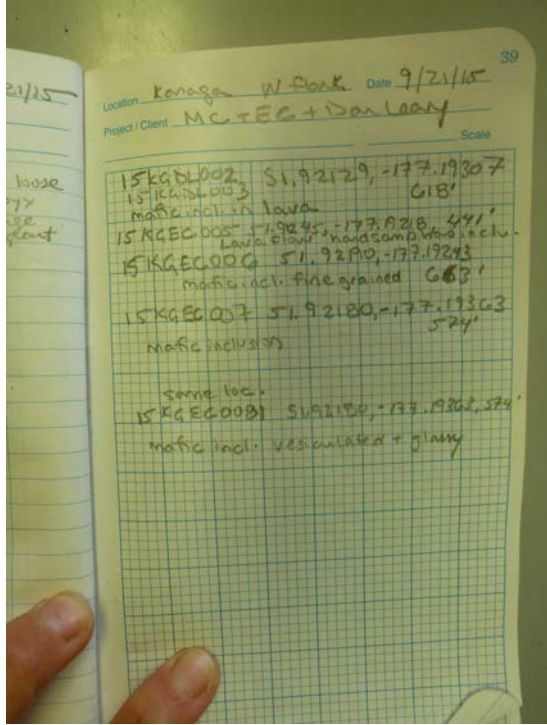 21/15
loose
39
Location Kanaga W flank Date 9/21/15
Project / Client MC + EC + Dan Leary
Scale
15KGDL002 51.92129, -177.19307
15KGDL003 618'
mafic incl in lava
15KGEC005 51.9245, -177.1928, 441'
Lava flow handsamp w/o inclu.
15KGEC006 51.9290, -177.19293
mafic incl. fine grained 663'
15KGEC007 51.92180, -177.19363
574'
mafic inclusion
same loc.
15KGEC008 51.92180, -177.19363, 574'
mafic incl. vesiculated + glassy